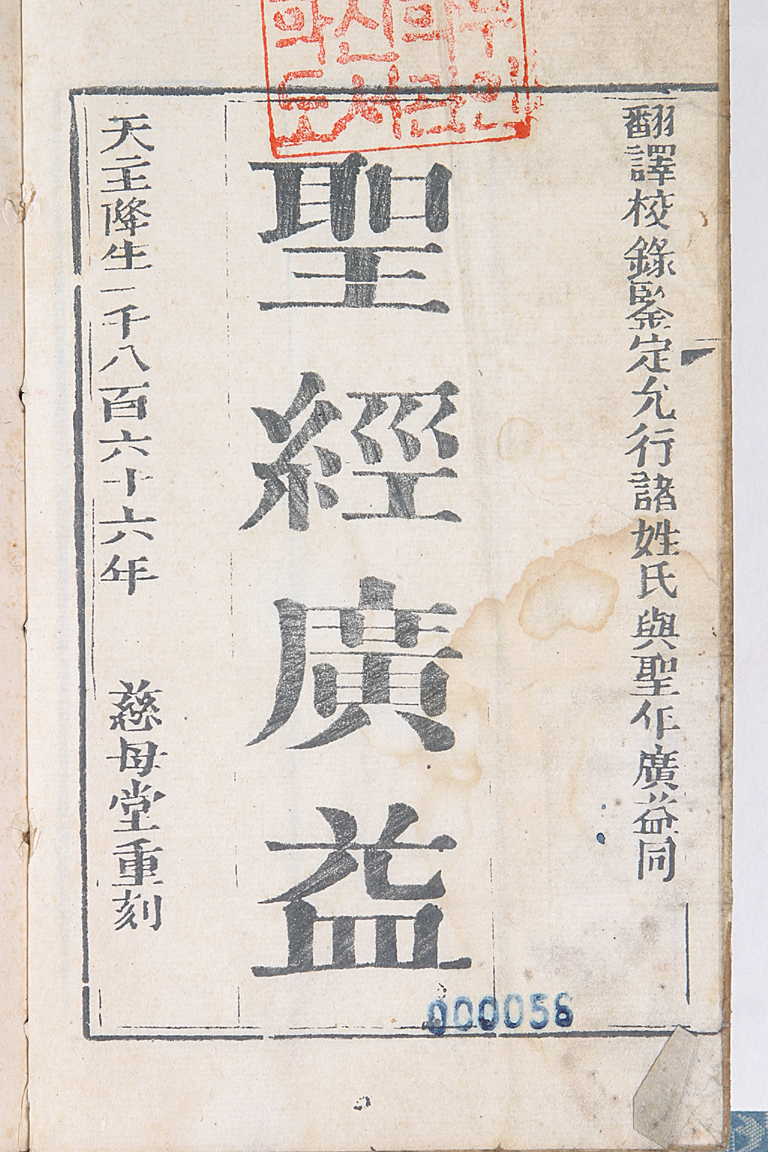 학신학부
도서관인
翻譯校錄鑒定允行諸姓氏與聖年廣益同
聖經廣益
天主降生一千八百六十六年 慈母堂重刻
000056